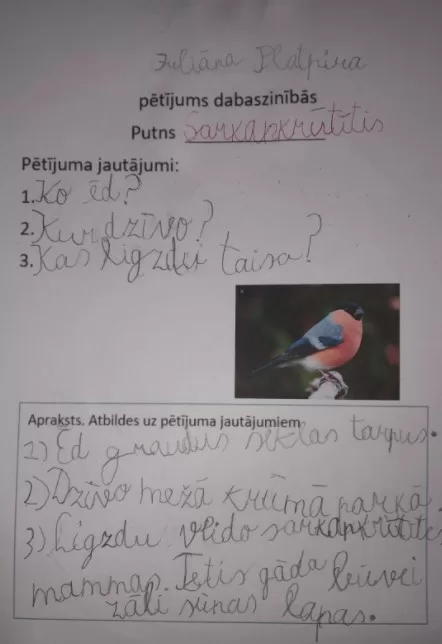 Juliāna Platpīra
pētījums dabaszinībās
Putns Sarkankrūtītis
Pētījuma jautājumi:
1. Ko ēd?
2. Kur dzīvo?
3. Kas ligzdu taisa?
Apraksts. Atbildes uz pētījuma jautājumiem
1) Ēd graudus sēklas tārpus.
2) Dzīvo mežā krūmā parkā.
3) Ligzdu veido sarkankrūtītes
mammas. Tētis gādā būvei
zāli sūnas lapas.